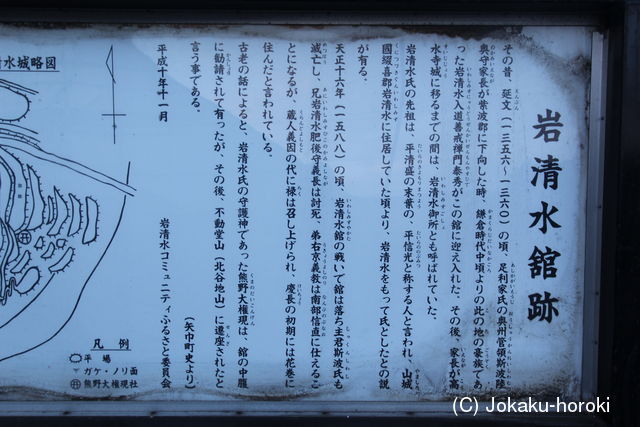 岩清水舘跡
その昔、延文（一三五六～一三六〇）の頃、足利家氏の奥州管領斯波陸
奥守家長が紫波郡に下向した時、鎌倉時代中頃よりの此の地の豪族であ
った岩清水入道善戒禅門泰秀がこの舘に迎え入れた。その後、家長が高
水寺城に移るまでの間は、岩清水御所とも呼ばれていた。
岩清水氏の先祖は、平清盛の末葉の、平信光と称する人と言われ、山城
国綴喜郡岩清水に住居していた頃より、岩清水をもって氏としたとの説
が有る。
天正十六年（一五八八）の頃、岩清水舘の戦いで舘は落ち主君斯波氏も
滅亡し、兄岩清水肥後守義長は討死、弟右京義教は南部信直に仕えるこ
とになるが、蔵人義因の代に禄は召し上げられ、慶長の初期には花巻に
住んだと言われている。
古老の話によると、岩清水氏の守護神であった熊野大権現は、舘の中腹
に勧請されて有ったが、その後、不動堂山（北谷地山）に遷座されたと
言う事である。
（矢巾町史より）
平成十年十一月
岩清水コミュニティふるさと委員会
清水城略図
凡例
平場
ガケ・ノリ面
熊野大権現社
(C) Jokaku-horoki